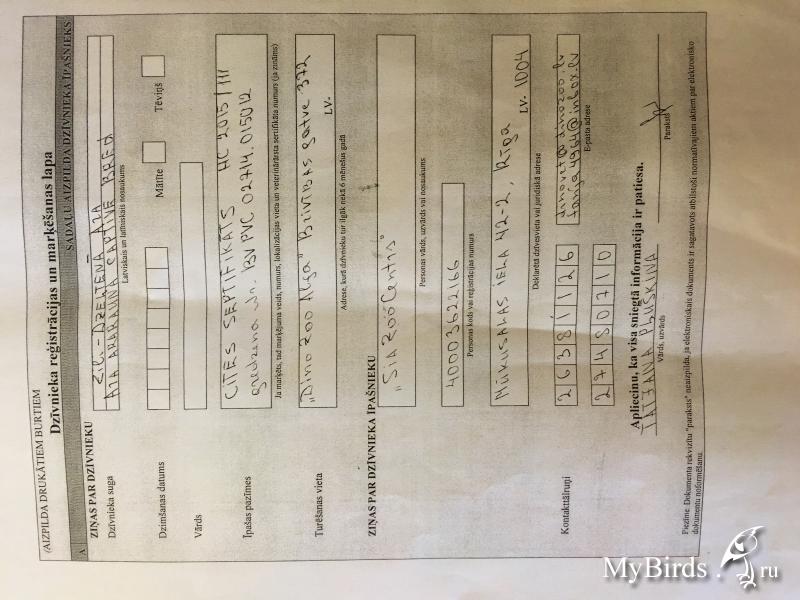 (AIZPILDA DRUKĀTIEM BURTIEM
Dzīvnieka reģistrācijas un marķēšanas lapa
A ŠADAĻU AIZPILDA DZĪVNIEKA ĪPAŠNIEKS
ZIŅAS PAR DZĪVNIEKU
Dzīvnieka suga
Zili-DZELTENA AZA
AZA ARARAUNA CAPTIVE BRED
Latviskais un latīniskais nosaukums
Dzimšanas datums
Mātīte
Tēviņš
Vārds
Īpašas pazīmes
CITES SEPTIFIKĀTS HC 2015/III
gredzena Nr. BV PVC 02714.015012
Ja marķēts, tad marķējuma veids, numurs, lokalizācijas vieta un veterinārārsta sertifikāta numurs (ja zināms)
Turēšanas vieta
"Dino Zoo Alga" Brīvības gatve 372
LV-
Adrese, kurā dzīvnieku tur ilgāk nekā 6 mēnešus gadā
ZIŅAS PAR DZĪVNIEKA ĪPAŠNIEKU
"SIA ZooCentrs"
Personas vārds, uzvārds vai nosaukums
40003622166
Personas kods vai reģistrācijas numurs
MŪKUSALAS IELA 42-2, Rīga
LV- 1004
Deklarētā dzīvesvieta vai juridiskā adrese
Kontakttālruņi
26381126
27480710
dinovet@dinozoo.lv
tanja4964@inbox.lv
E-pasta adrese
Apliecinu, ka visa sniegtā informācija ir patiesa.
TATJANA PŪSKINA
Vārds, uzvārds
Paraksts
Piezīme. Dokumenta rekvizītu "paraksts" neaizpilda, ja elektroniskais dokuments ir sagatavots atbilstoši normatīvajiem aktiem par elektronisko
dokumentu noformēšanu.
MyBirds.ru